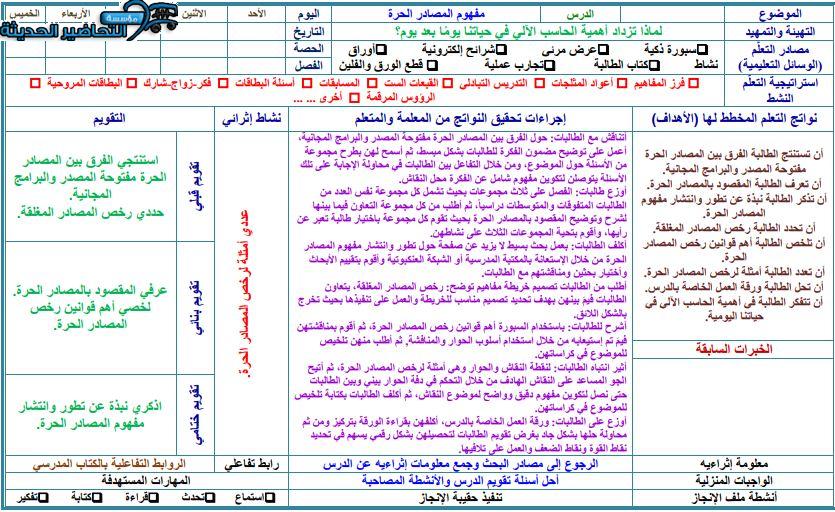 مؤسسة
التحاضير الحديثة
الموضوع
الدرس
مفهوم المصادر الحرة
اليوم
الأحد
الاثنين
الأربعاء
الخميس
التهيئة والتمهيد
لماذا تزداد أهمية الحاسب الآلي في حياتنا يومًا بعد يوم؟
التاريخ
مصادر التعلّم
(الوسائل التعليمية)
سبورة ذكية
عرض مرئي
شرائح إلكترونية
أوراق
نشاط
كتاب الطالبة
تجارب عملية
قطع الورق والفلين
الحصة
الفصل
استراتيجية التعلّم
النشط
فرز المفاهيم
أعواد المثلجات
التدريس التبادلي
القبعات الست
المسابقات
أسئلة البطاقات
فكر-زواج-شارك
البطاقات المروحية
الرؤوس المرقمة
أخرى ... ...
نواتج التعلم المخطط لها (الأهداف)
إجراءات تحقيق النواتج من المعلمة والمتعلم
نشاط إثرائي
التقويم
أن تستنتج الطالبة الفرق بين المصادر الحرة
مفتوحة المصدر والبرامج المجانية.
أن تعرف الطالبة المقصود بالمصادر الحرة.
أن تذكر الطالبة نبذة عن تطور وانتشار مفهوم
المصادر الحرة.
أن تحدد الطالبة رخص المصادر المغلقة.
أن تلخص الطالبة أهم قوانين رخص المصادر
الحرة.
أن تعدد الطالبة أمثلة لرخص المصادر الحرة.
أن تحل الطالبة ورقة العمل الخاصة بالدرس.
أن تتفكر الطالبة في أهمية الحاسب الآلي في
حياتنا اليومية.
الخبرات السابقة
أتناقش مع الطالبات: حول الفرق بين المصادر الحرة مفتوحة المصدر والبرامج المجانية،
أعمل على توضيح مضمون الفكرة للطالبات بشكل مبسط، ثم أسمح لهن بطرح مجموعة
من الأسئلة حول الموضوع، ومن خلال التفاعل بين الطالبات في محاولة الإجابة على تلك
الأسئلة يتوصلن لتكوين مفهوم شامل عن الفكرة محل النقاش.
أوزع طالبات: الفصل على ثلاث مجموعات بحيث تشمل كل مجموعة نفس العدد من
الطالبات المتفوقات والمتوسطات دراسياً، ثم أطلب من كل مجموعة التعاون فيما بينها
لشرح وتوضيح المقصود بالمصادر الحرة بحيث تقوم كل مجموعة باختيار طالبة تعبر عن
رأيها، وأقوم بتحية المجموعات الثلاث على نشاطهن.
أكلف الطالبات: بعمل بحث بسيط لا يزيد عن صفحة حول تطور وانتشار مفهوم المصادر
الحرة من خلال الإستعانة بالمكتبة المدرسية أو الشبكة العنكبوتية وأقوم بتقييم الأبحاث
وأختيار بحثين ومناقشتهم مع الطالبات.
أطلب من الطالبات تصميم خريطة مفاهيم توضح: رخص المصادر المغلقة، يتعاون
الطالبات فيم بينهن بهدف تحديد تصميم مناسب للخريطة والعمل على تنفيذها بحيث تخرج
بالشكل اللائق.
أشرح للطالبات: باستخدام السبورة أهم قوانين رخص المصادر الحرة، ثم أقوم بمناقشتهن
فيم تم إستيعابه من خلال استخدام أسلوب الحوار والمناقشة, ثم أطلب منهن تلخيص
للموضوع في كراساتهن.
أثير انتباه الطالبات: لنقطة النقاش والحوار وهى أمثلة لرخص المصادر الحرة، ثم أتيح
الجو المساعد على النقاش الهادف من خلال التحكم في دفة الحوار بيني وبين الطالبات
حتى نصل لتكوين مفهوم دقيق وواضح لموضوع النقاش، ثم أكلف الطالبات بكتابة تلخيص
للموضوع في كراساتهن.
أوزع على الطالبات: ورقة العمل الخاصة بالدرس، أكلفهن بقراءة الورقة بتركيز ومن ثم
محاولة حلها بشكل جاد بغرض تقويم الطالبات لتحصيلهن بشكل رقمي يسهم في تحديد
نقاط القوة ونقاط الضعف والعمل على تلافيها.
عددي أمثلة لرخص المصادر الحرة.
تقويم قبلي
استنتجي الفرق بين المصادر
الحرة مفتوحة المصدر والبرامج
المجانية.
حددي رخص المصادر المغلقة.
تقويم بنائي
عرفي المقصود بالمصادر الحرة.
لخصي أهم قوانين رخص
المصادر الحرة.
تقويم ختامي
اذكري نبذة عن تطور وانتشار
مفهوم المصادر الحرة.
معلومة إثراءيه
الرجوع إلى مصادر البحث وجمع معلومات إثراءيه عن الدرس
رابط تفاعلي
الروابط التفاعلية بالكتاب المدرسي
الواجبات المنزلية
أحل أسئلة تقويم الدرس والأنشطة المصاحبة
المهارات المستهدفة
أنشطة ملف الإنجاز
تنفيذ حقيبة الإنجاز
استماع
تحدث
قراءة
كتابة
تفكير